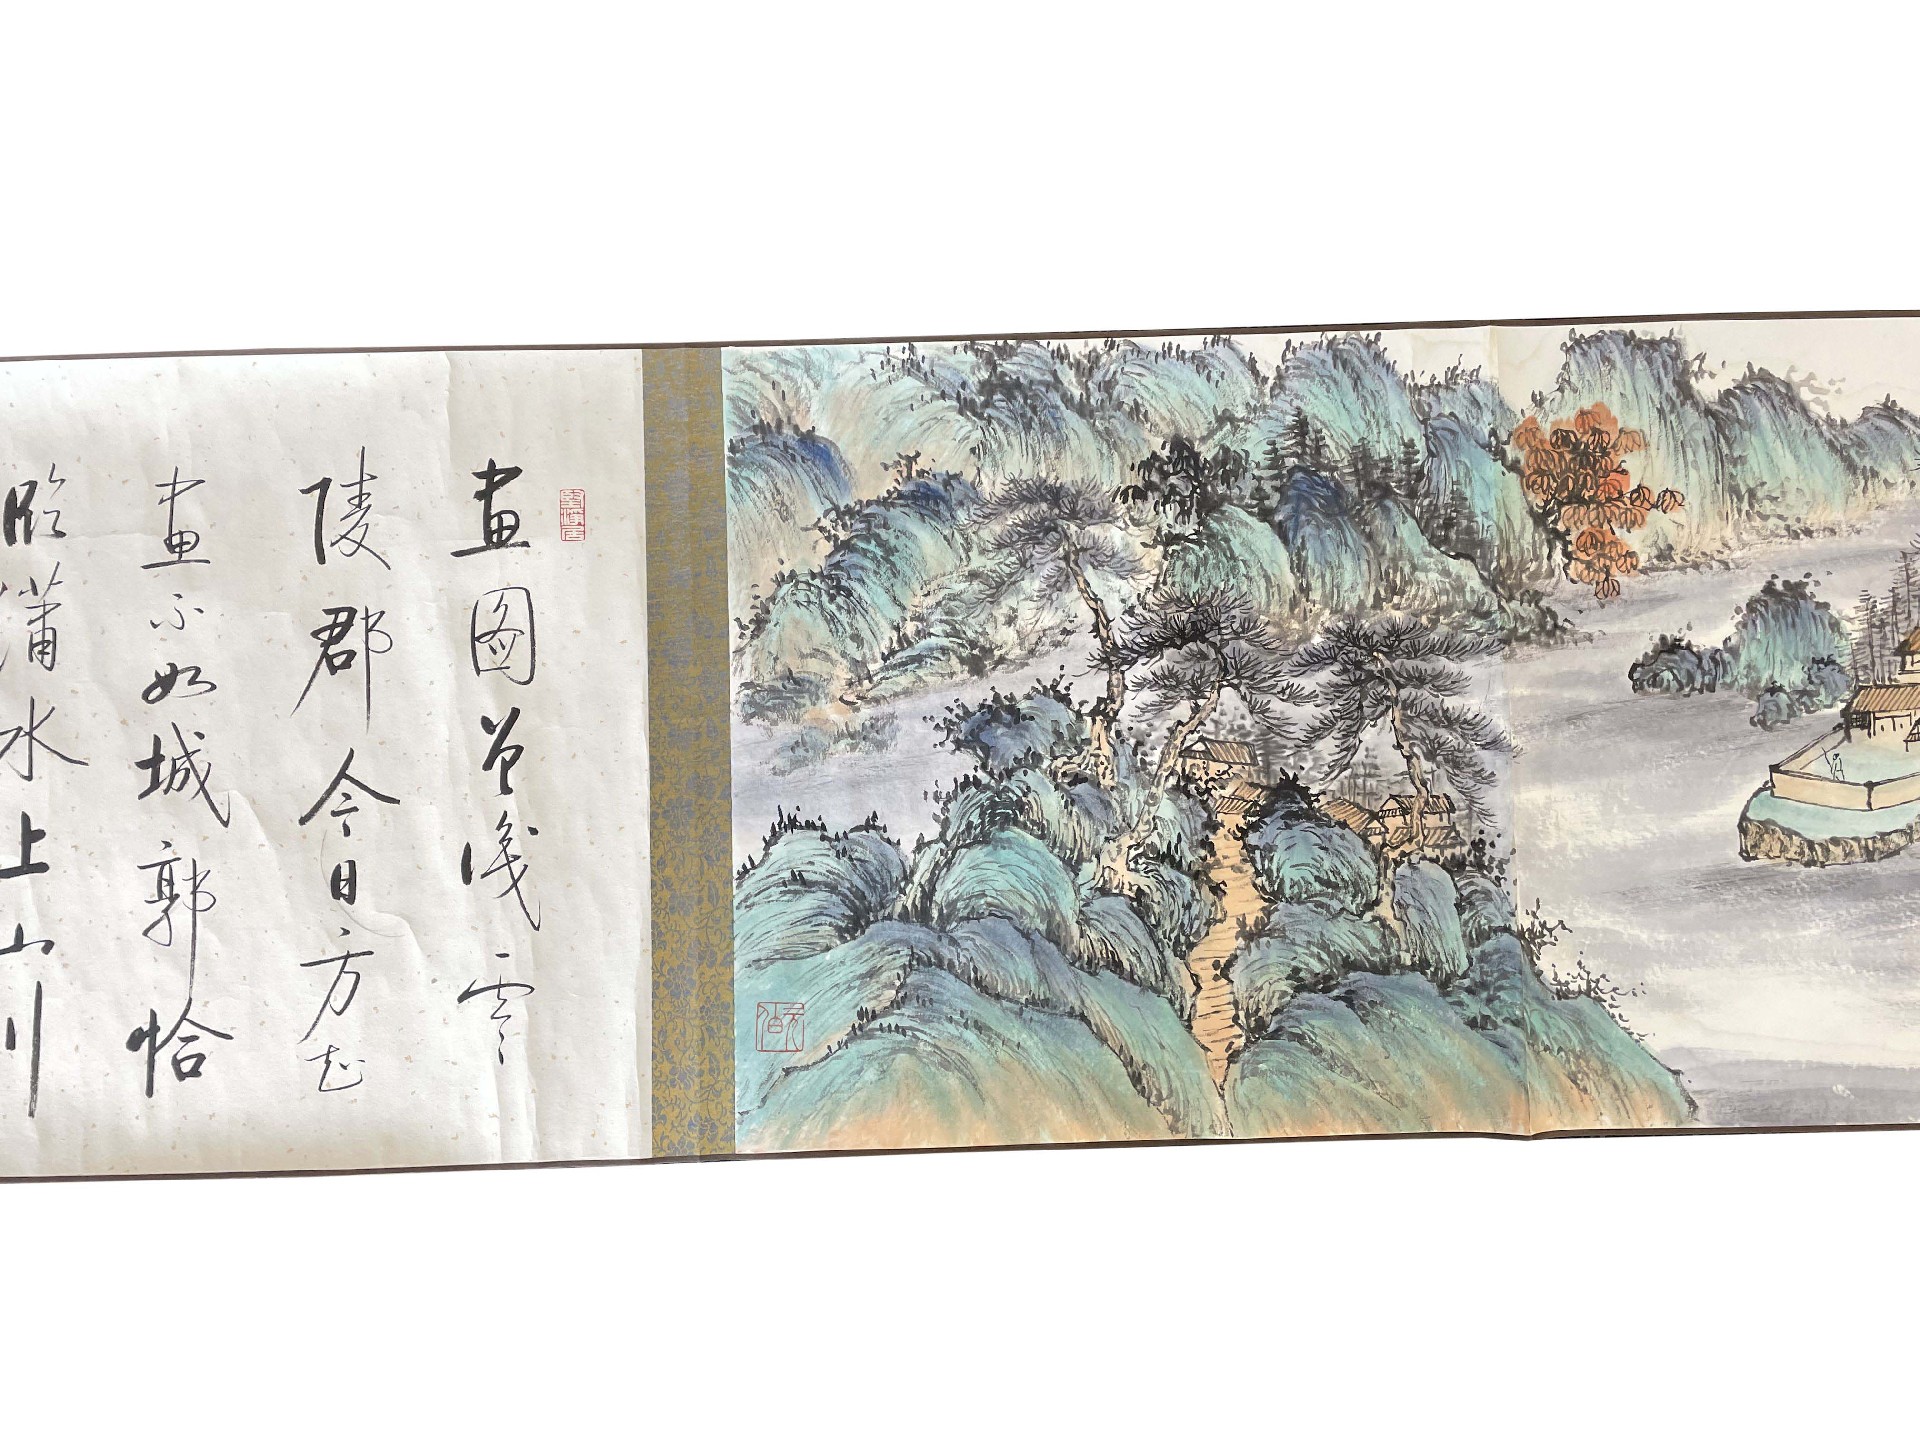 畫图曾識零
陵郡今日方知
畫不如城郭恰
臨瀟水上山川